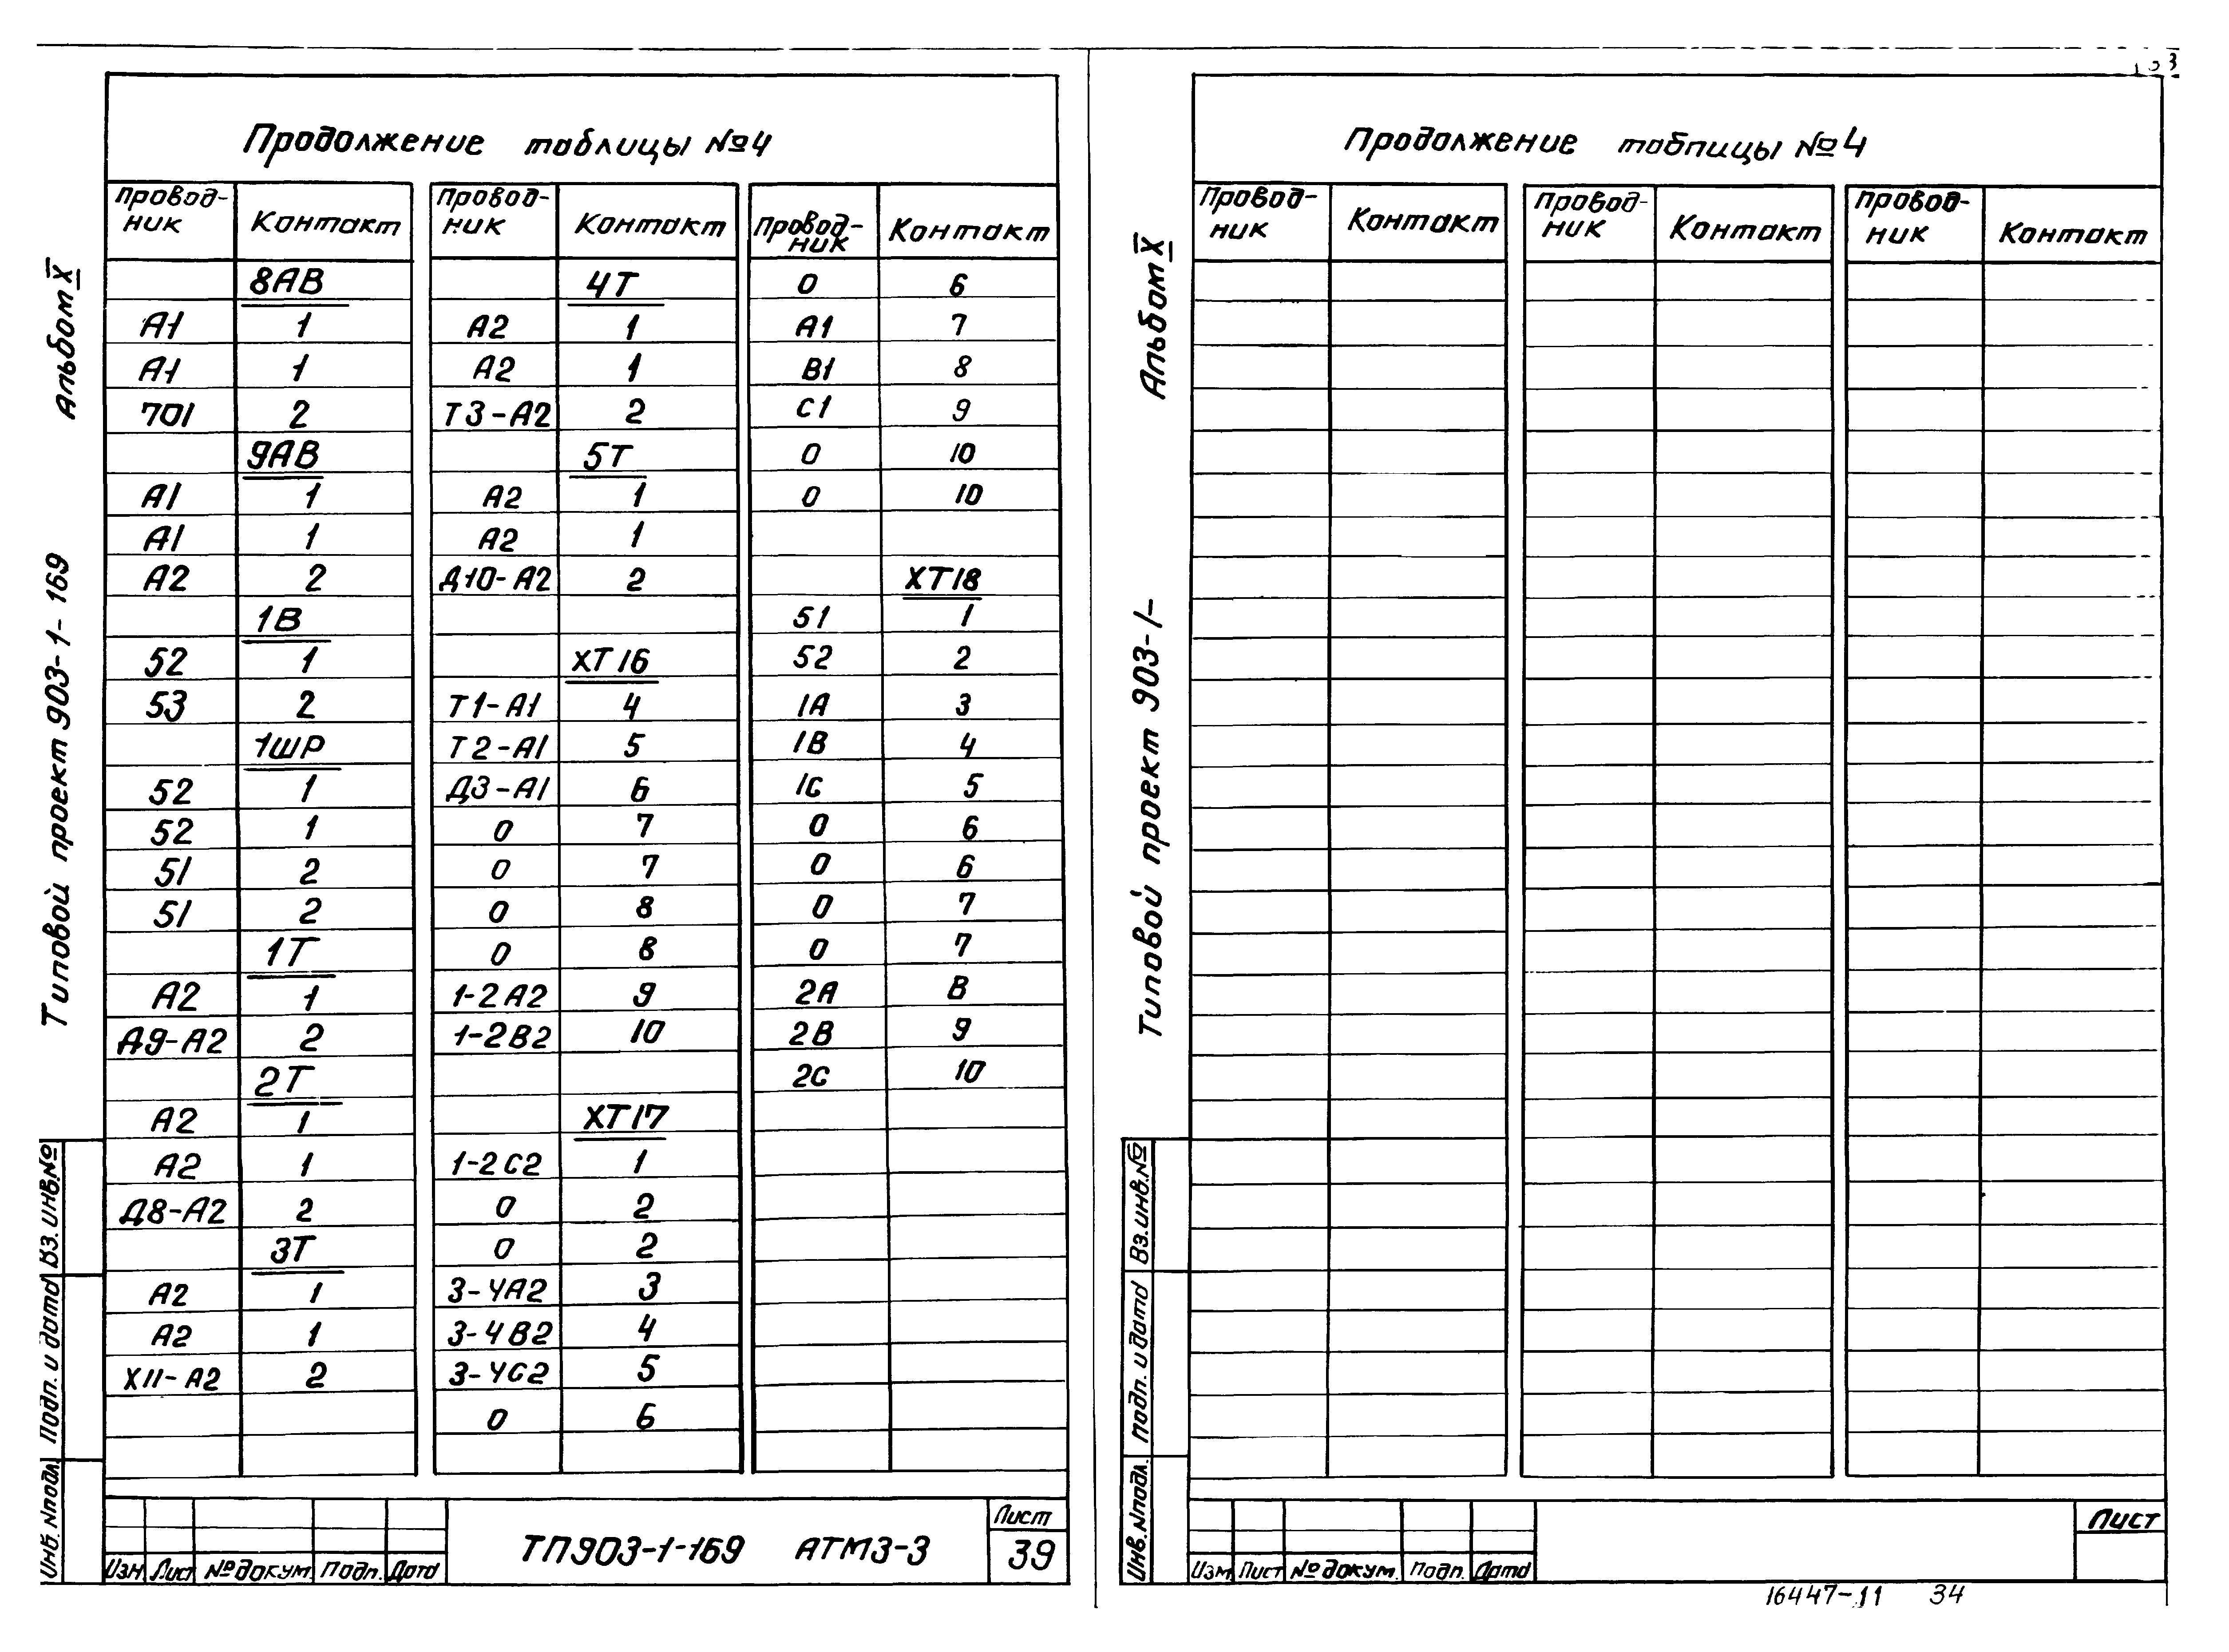 Продолжение таблицы №4
Провод-ник Контакт Провод-ник Контакт Провод-ник Контакт
8АВ 4Т 0 6
А1 1 А2 1 А1 7
А1 1 А2 1 В1 8
701 2 Т3-А2 2 С1 9
9АВ 5Т 0 10
А1 1 А2 1 0 10
А1 1 А2 1
А2 2 Д10-А2 2 ХТ18
1В 51 1
52 1 ХТ16 52 2
53 2 Т1-А1 4 1А 3
1ШР Т2-А1 5 1В 4
52 1 Д3-А1 6 1С 5
52 1 0 7 0 6
51 2 0 7 0 6
51 2 0 8 0 7
1Т 0 8 0 7
А2 1 1-2А2 9 2А 8
Д9-А2 2 1-2В2 10 2В 9
2Т 2С 10
А2 1 ХТ17
А2 1 1-2С2 1
Д8-А2 2 0 2
3Т 0 2
А2 1 3-4А2 3
А2 1 3-4В2 4
Х11-А2 2 3-4С2 5
0 6
Альбом X
Типовой проект 903-1-169
Вз. инв.№
Подп. и дата
Инв. №подл.
Изм Лист № докум. Подп. Дата
ТП903-1-169 АТМ3-3
Лист
39
Продолжение таблицы №4
Провод-ник Контакт Провод-ник Контакт Провод-ник Контакт
Альбом X
Типовой проект 903-1-
Вз.инв.№
Подп. и дата
Инв.№подл.
Изм Лист № докум. Подп. Дата
Лист
16447-11 34